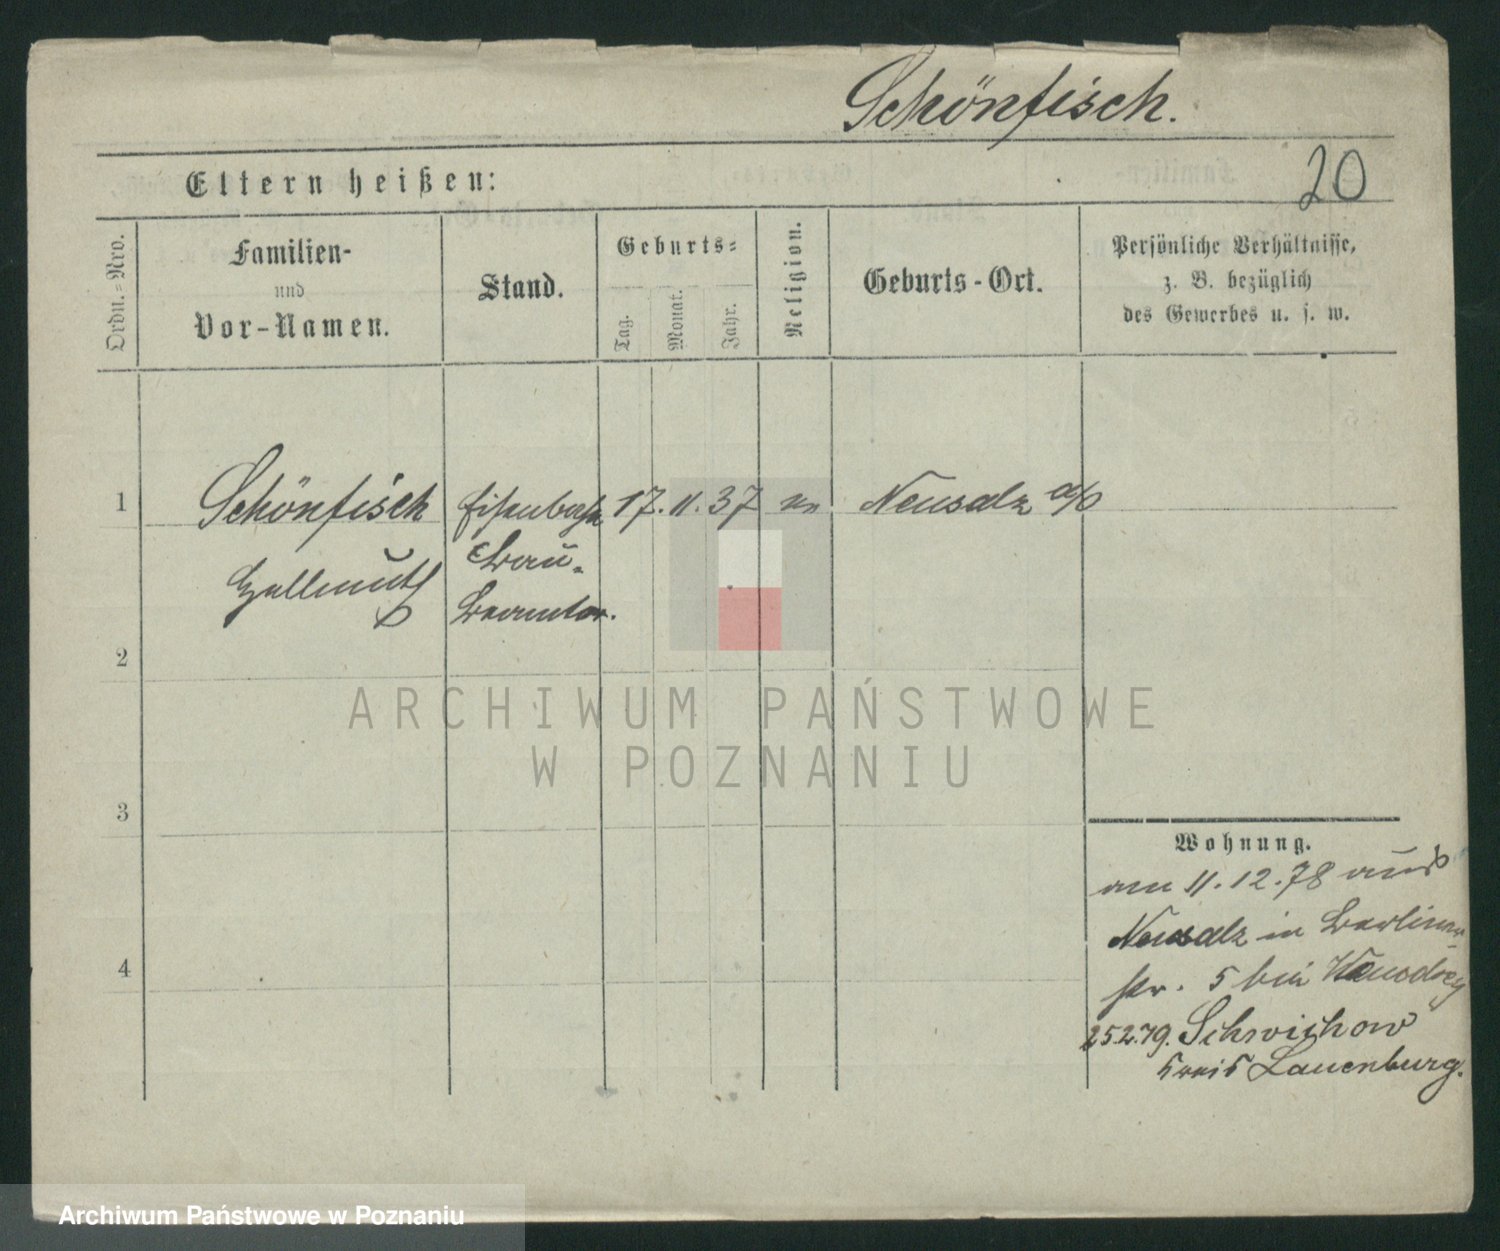 Schönfisch.
20
Eltern heißen:
Ordn.=Nro.
Familien-
und
Vor-Namen.
Stand.
Geburts=
Tag.
Monat.
Jahr.
Religion.
Geburts-Ort.
Persönliche Verhältnisse,
z. B. bezüglich
des Gewerbes u. s. w.
1
Schönfisch Eisenbahn 17. 11. 37 ev Neusalz a/O
Hellmuth
Bau-
Beamter.
2
3
4
Wohnung.
am 11.12.78 aus
Neusalz in Berliner
str. 5 bei
25.2.79. Schwichow
Kreis Lauenburg.
ARCHIWUM PAŃSTWOWE
W POZNANIU
Archiwum Państwowe w Poznaniu